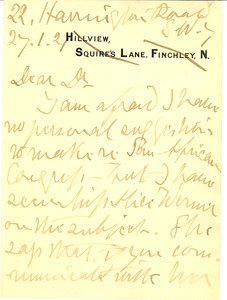 22, Harrington Road
S.W.7
27.1.21
HILLVIEW,
SQUIRE'S LANE, FINCHLEY, N.
Dear Dr
I am afraid I have
no personal suggestions
to make re Sou African
Congress – but I have
seen Miss Alice Werner
on the subject. She
says that if you com-
municate with her